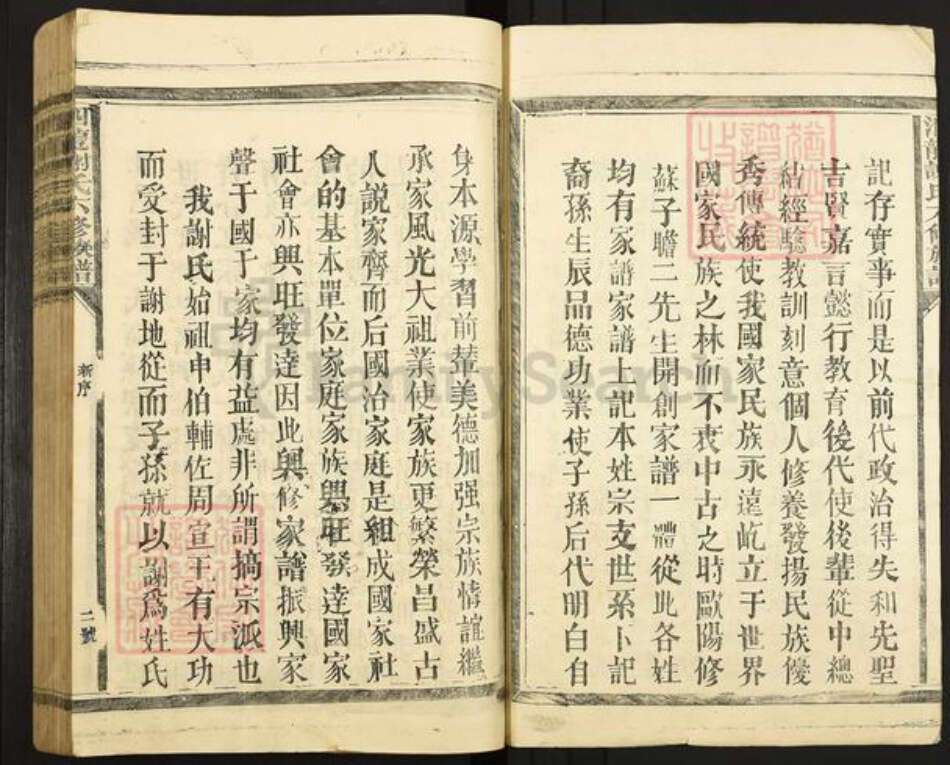 記存實事而是以前代政治得失和先聖
吉賢嘉言懿行教育後代使後輩從中總
結經驗教訓刻意個人修養發揚民族優
秀傳統使我國家民族永遠屹立于世界
國家民族之林而不衰中古之時歐陽修
蘇子瞻二先生開創家譜一體從此各姓
均有家譜家譜上記本姓宗支世系卜記
裔孫生辰品德功業使子孫后代明白自
身本源學習前輩美德加强宗族情誼繼
承家風光大祖業使家族更繁榮昌盛古
人説家齊而后國治家庭是組成國家社
會的基本單位家庭家族興旺發達國家
社會亦興旺發達因此興修家譜振興家
聲于國于家均有益處非所謂搞宗派也
我謝氏始祖申伯輔佐周宣王有大功
而受封于謝地從而子孫就以謝爲姓氏
謝氏六修族譜
新序
二號
FamilySearch